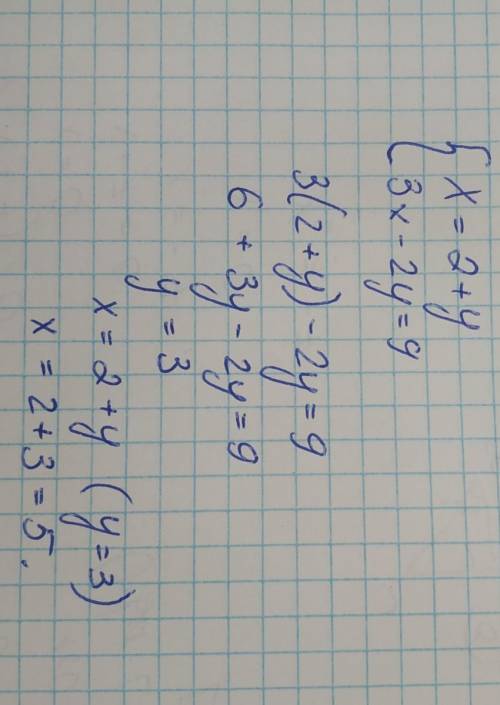 { x = 2 + y
3x - 2y = 9
3(2 + y) - 2y = 9
6 + 3y - 2y = 9
y = 3
x = 2 + y (y = 3)
x = 2 + 3 = 5.